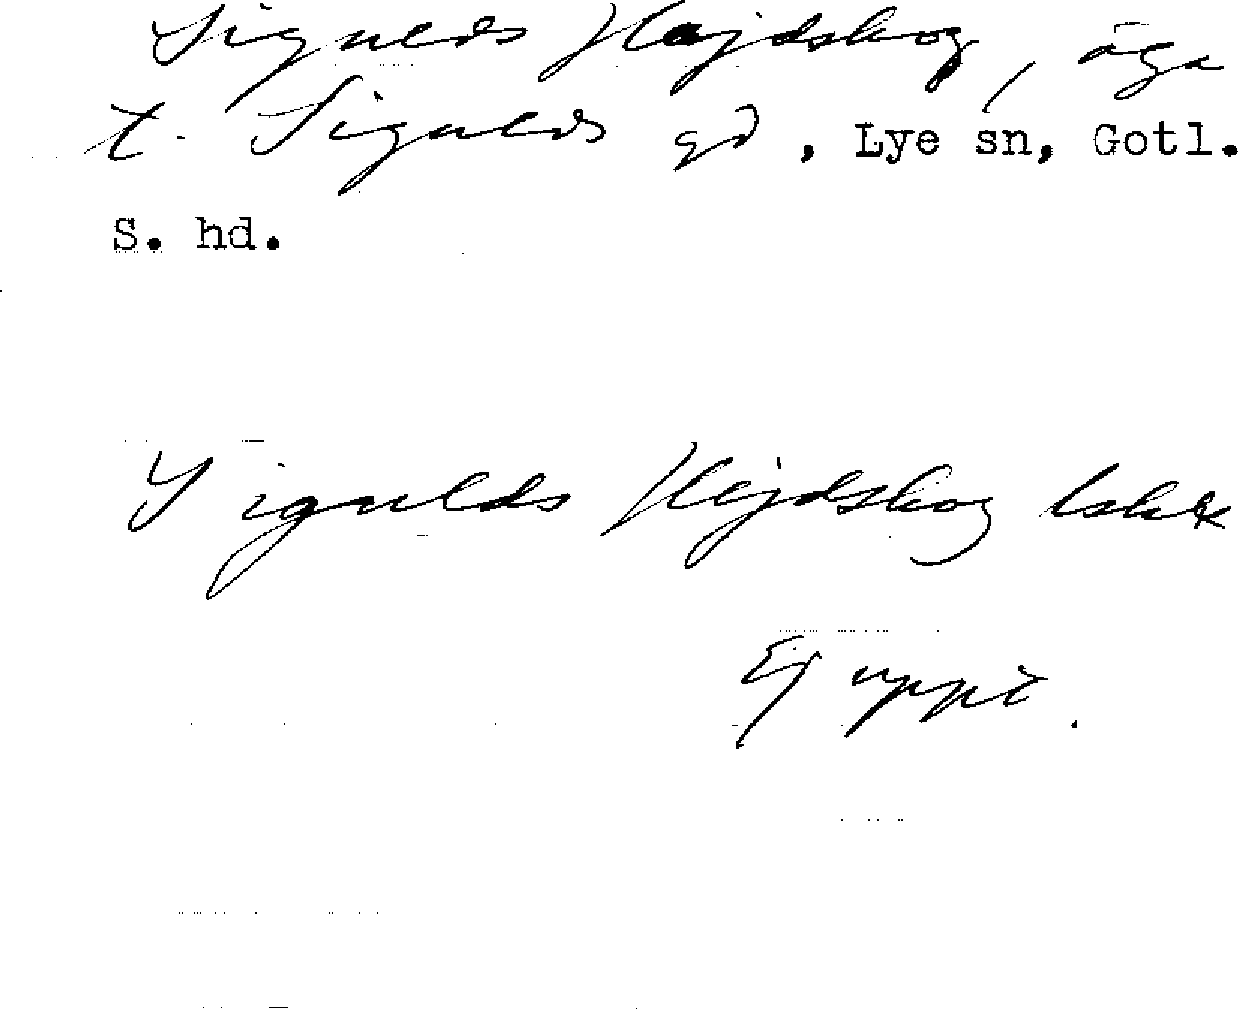 Sigulds Hajdskog, äga
t. Sigulds gd, Lye sn, Gotl.
S. hd.
Sigulds Hejdskog
Ej uppt.